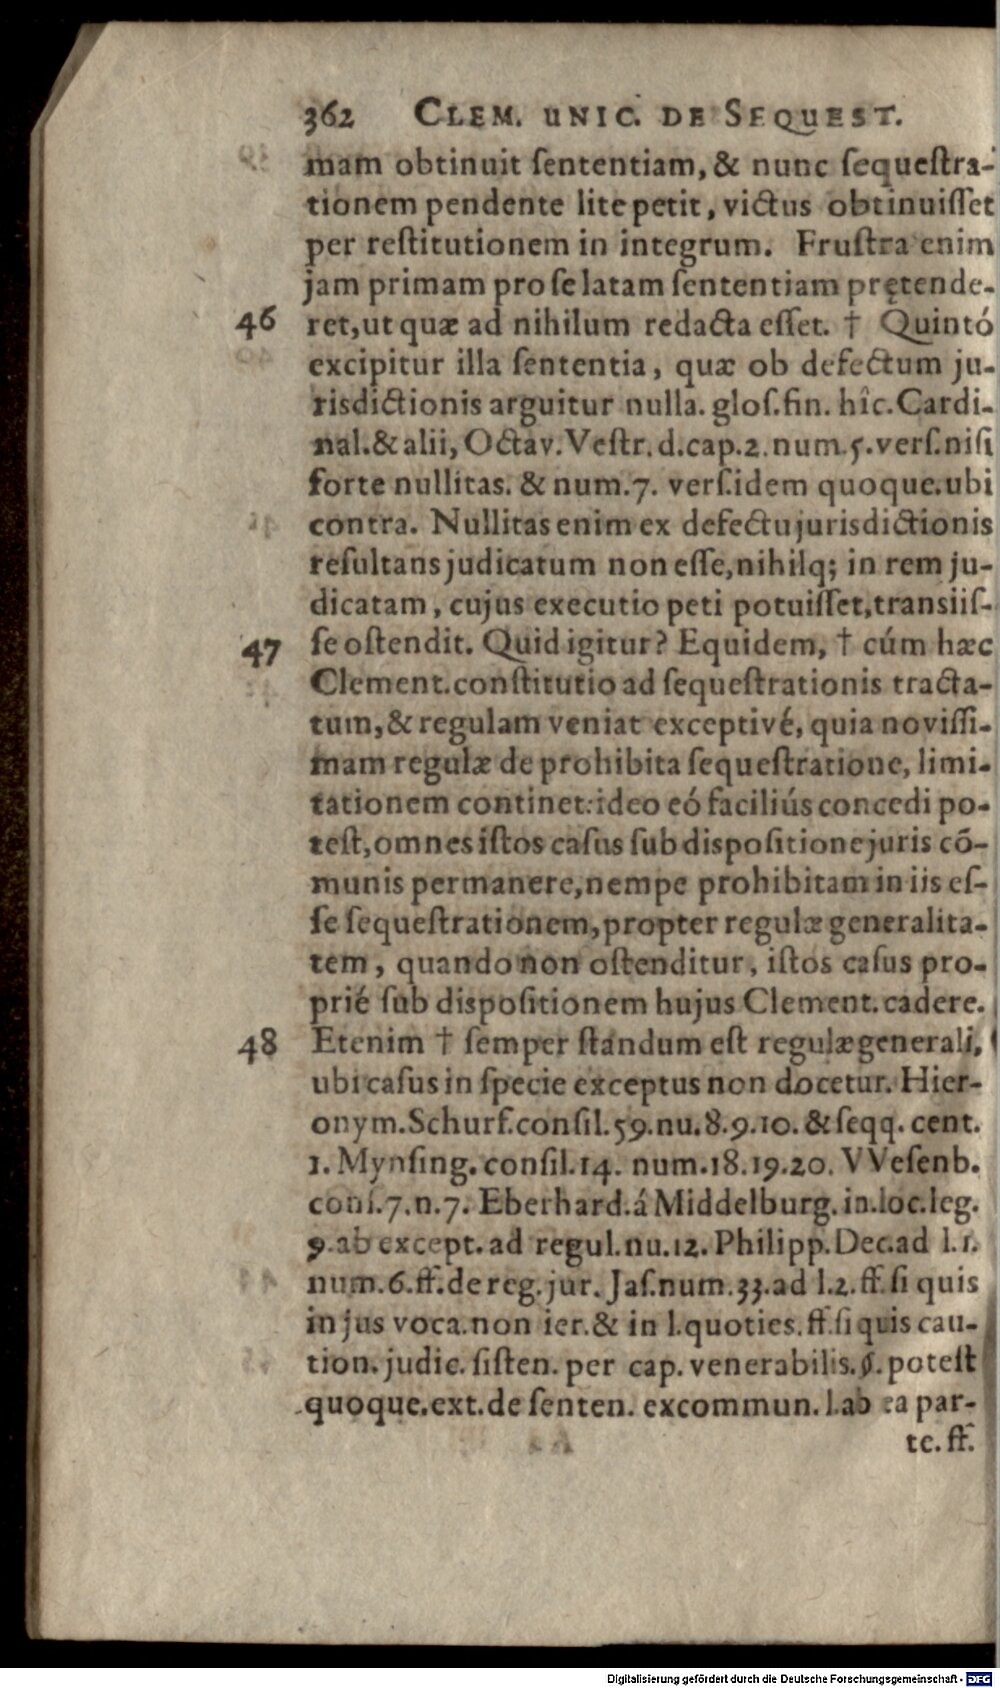 362 CLEM. UNIC. DE SEQUEST.
mam obtinuit ſententiam, & nunc ſequeſtra-
tionem pendente lite petit, victus obtinuiſſet
per reſtitutionem in integrum. Fruſtra enim
jam primam pro ſe latam ſententiam prętende-
46 ret, ut quæ ad nihilum redacta eſſet. † Quintó
excipitur illa ſententia, quæ ob defectum ju-
risdictionis arguitur nulla. gloſ. fin. hîc. Cardi-
nal. & alii, Octav. Veſtr. d. cap. 2. num. 5. verſ. niſi
forte nullitas. & num. 7. verſ. idem quoque. ubi
contra. Nullitas enim ex defectu jurisdictionis
reſultans judicatum non eſſe, nihilq; in rem ju-
dicatam, cujus executio peti potuiſſet, transiiſ-
47 ſe oſtendit. Quid igitur? Equidem, † cúm hæc
Clement. conſtitutio ad ſequeſtrationis tracta-
tum, & regulam veniat exceptivé, quia noviſſi-
mam regulæ de prohibita ſequeſtratione, limi-
tationem continet: ideo eó faciliús concedi po-
teſt, omnes iſtos caſus ſub dispoſitione juris cõ-
munis permanere, nempe prohibitam in iis eſ-
ſe ſequeſtrationem, propter regulæ generalita-
tem, quando non oſtenditur, iſtos caſus pro-
prié ſub dispoſitionem hujus Clement. cadere.
48 Etenim † ſemper ſtandum eſt regulæ generali,
ubi caſus in ſpecie exceptus non docetur. Hier-
onym. Schurf. conſil. 59. nu. 8. 9. 10. & ſeqq. cent.
1. Mynſing. conſil. 14. num. 18. 19. 20. VVeſenb.
conſ. 7. n. 7. Eberhard. á Middelburg. in. loc. leg.
9. ab except. ad regul. nu. 12. Philipp. Dec. ad l. 1.
num. 6. ff. de reg. jur. Jaſ. num. 33. ad l. 2. ff. ſi quis
in jus voca. non ier. & in l. quoties. ff. ſi quis cau-
tion. judic. ſiſten. per cap. venerabilis. §. poteſt
quoque. ext. de ſenten. excommun. l. ab ea par-
te. ff.
Digitalisierung gefördert durch die Deutsche Forschungsgemeinschaft - DFG